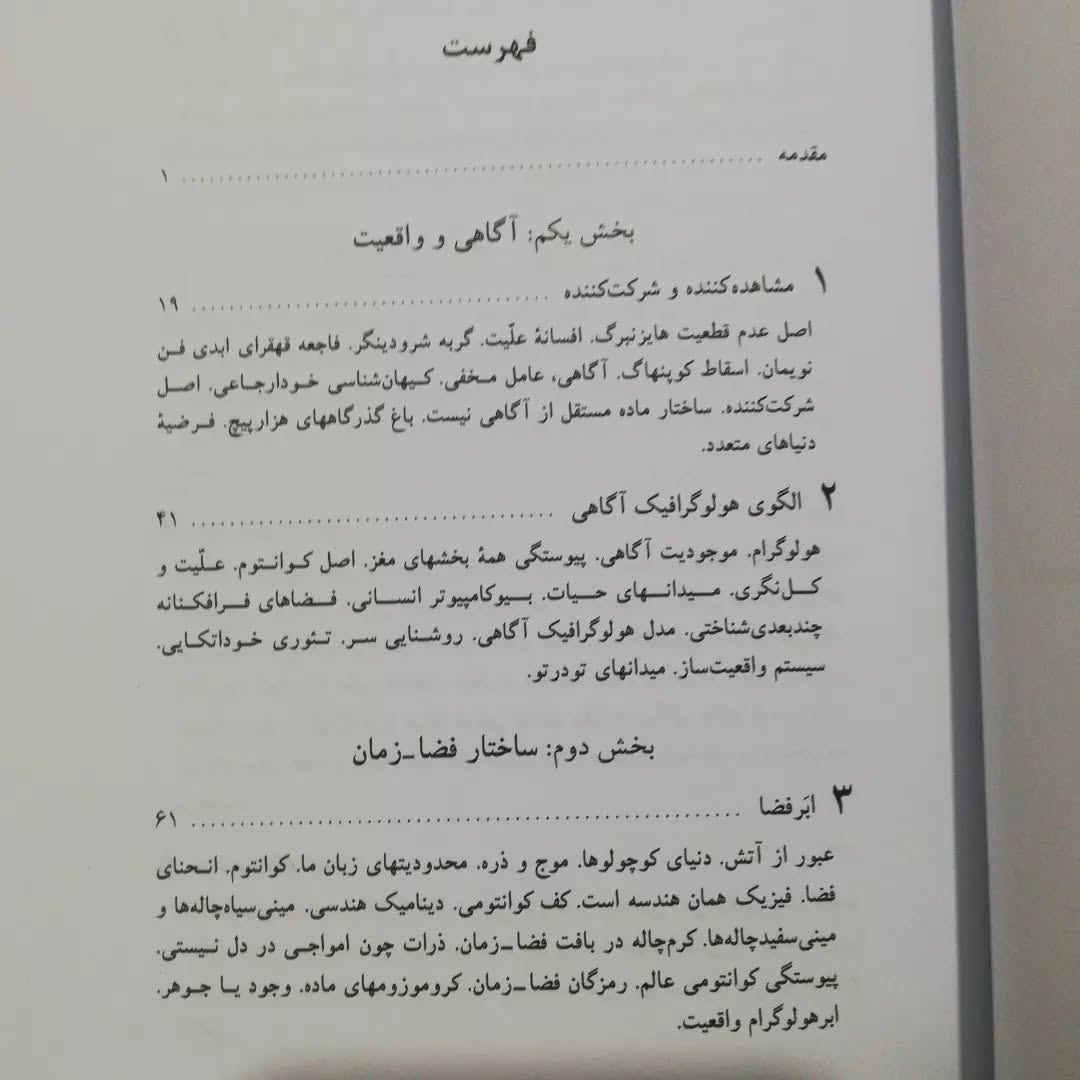 فهرست
مقدمه ........................................................ ۱
بخش یکم: آگاهی و واقعیت
۱ مشاهده‌کننده و شرکت‌کننده ..................................... ۱۹
اصل عدم قطعیت هایزنبرگ. افسانهٔ علّیت. گربه شرودینگر. فاجعه قهقرای ابدی فـن
نویمان. اسقاط کوپنهاگ. آگاهی، عامل مـخفی. کیهان‌شناسی خـودارجـاعی. اصـل
شرکت‌کننده. ساختار ماده مستقل از آگاهی نیست. باغ گذرگاههای هزارپیچ. فـرضیهٔ
دنیاهای متعدد.
۲ الگوی هولوگرافیک آگاهی ..................................... ۴۱
هولوگرام. موجودیت آگاهی. پیوستگی همهٔ بخشهای مغز. اصل کـوانـتوم. عـلّیت و
کـل‌نگری. مـیدانـهای حـیات. بـیوکامپیوتر انسـانی. فـضاهای فـرافکـنانه
چندبعدی‌شناختی. مدل هولوگرافیک آگاهی. روشنایی سر. تـئوری خـوداتکـایی.
سیستم واقعیت‌ساز. میدانهای تودرتو.
بخش دوم: ساختار فضاـزمان
۳ ابَرفضا ........................................................ ۶۱
عبور از آتش. دنیای کوچولوها. موج و ذره. محدودیتهای زبان ما. کوانتوم. انـحنای
فضا. فیزیک همان هندسه است. کف کوانتومی. دینامیک هندسی. مینی‌سیاه‌چاله‌ها و
مینی‌سفیدچاله‌ها. کرم‌چاله در بافت فضاـزمان. ذرات چون امواجـی در دل نـیستی.
پیوستگی کوانتومی عالم. رمزگان فضاـزمان. کروموزومهای ماده. وجود یـا جـوهر.
ابرهولوگرام واقعیت.